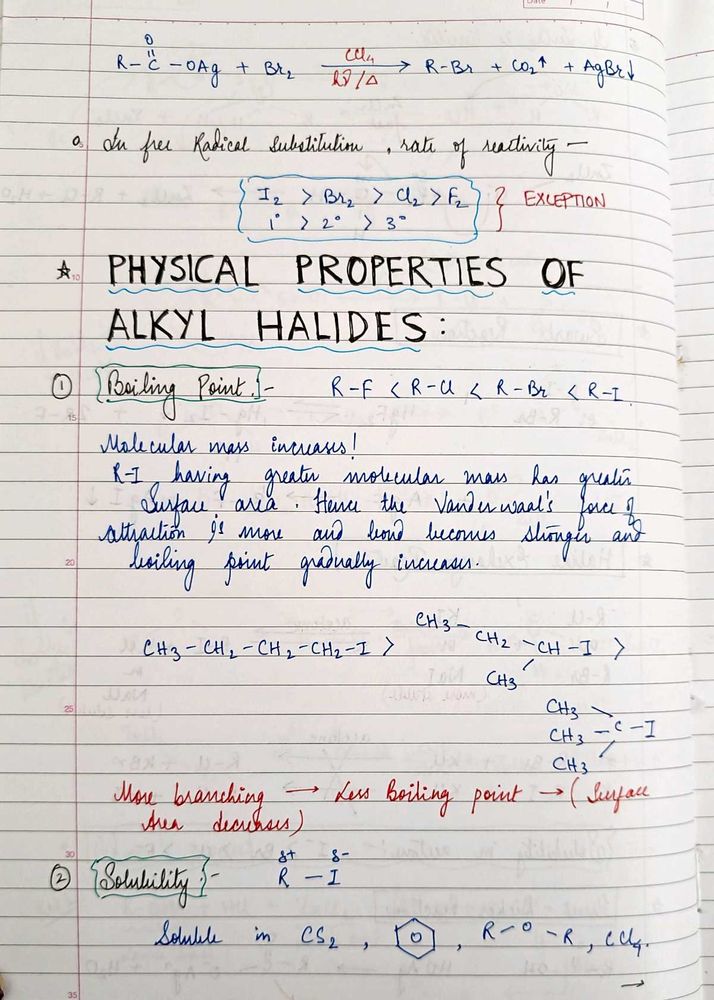 O
R–C–OAg + Br₂ → R-Br + CO₂↑ + AgBr↓
CCl₄
In free Radical Substitution, rate of reactivity –
I₂ > Br₂ > Cl₂ > F₂ } EXCEPTION
1° > 2° > 3°
☆ PHYSICAL PROPERTIES OF
ALKYL HALIDES:
① Boiling Point:- R-F < R-Cl < R-Br < R-I
Molecular mass increases!
R-I having greater molecular mass has greater
Surface area. Hence the Vander waal's force of
attraction is more and bond becomes stronger and
boiling point gradually increases.
CH₃ – CH₂ – CH₂ – CH₂ – I >
CH₃ – CH₂ – CH – I >
CH₃
CH₃
CH₃ – C – I
CH₃
More branching → Less Boiling point → (Surface
Area decreases)
② Solubility:- δ+ δ-
R – I
Soluble in CS₂, , R–O–R, CCl₄.
→
10
15
20
25
30
35